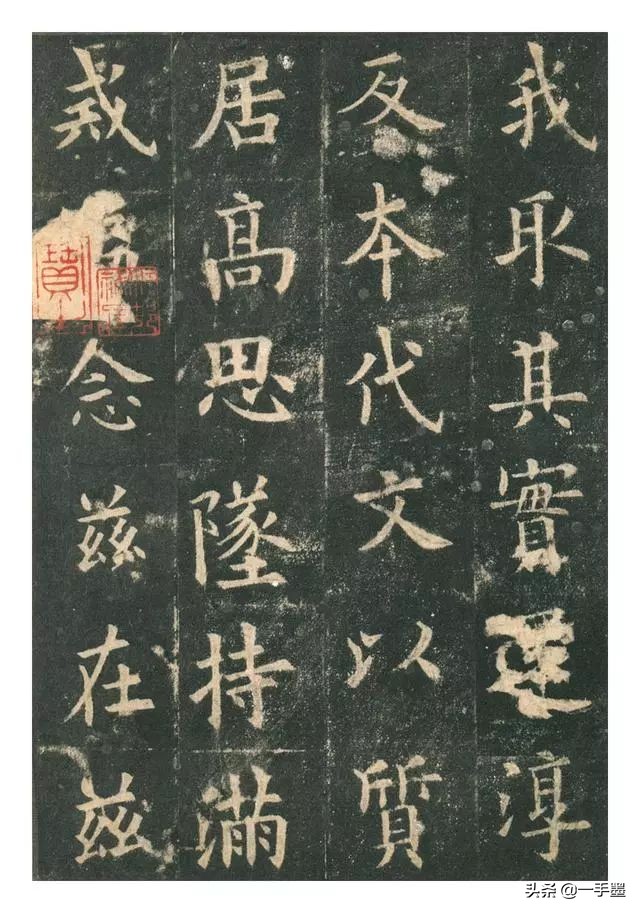 我取其實還淳
反本代文以質
居髙思墜持滿
戒念茲在茲
头条 @一手墨